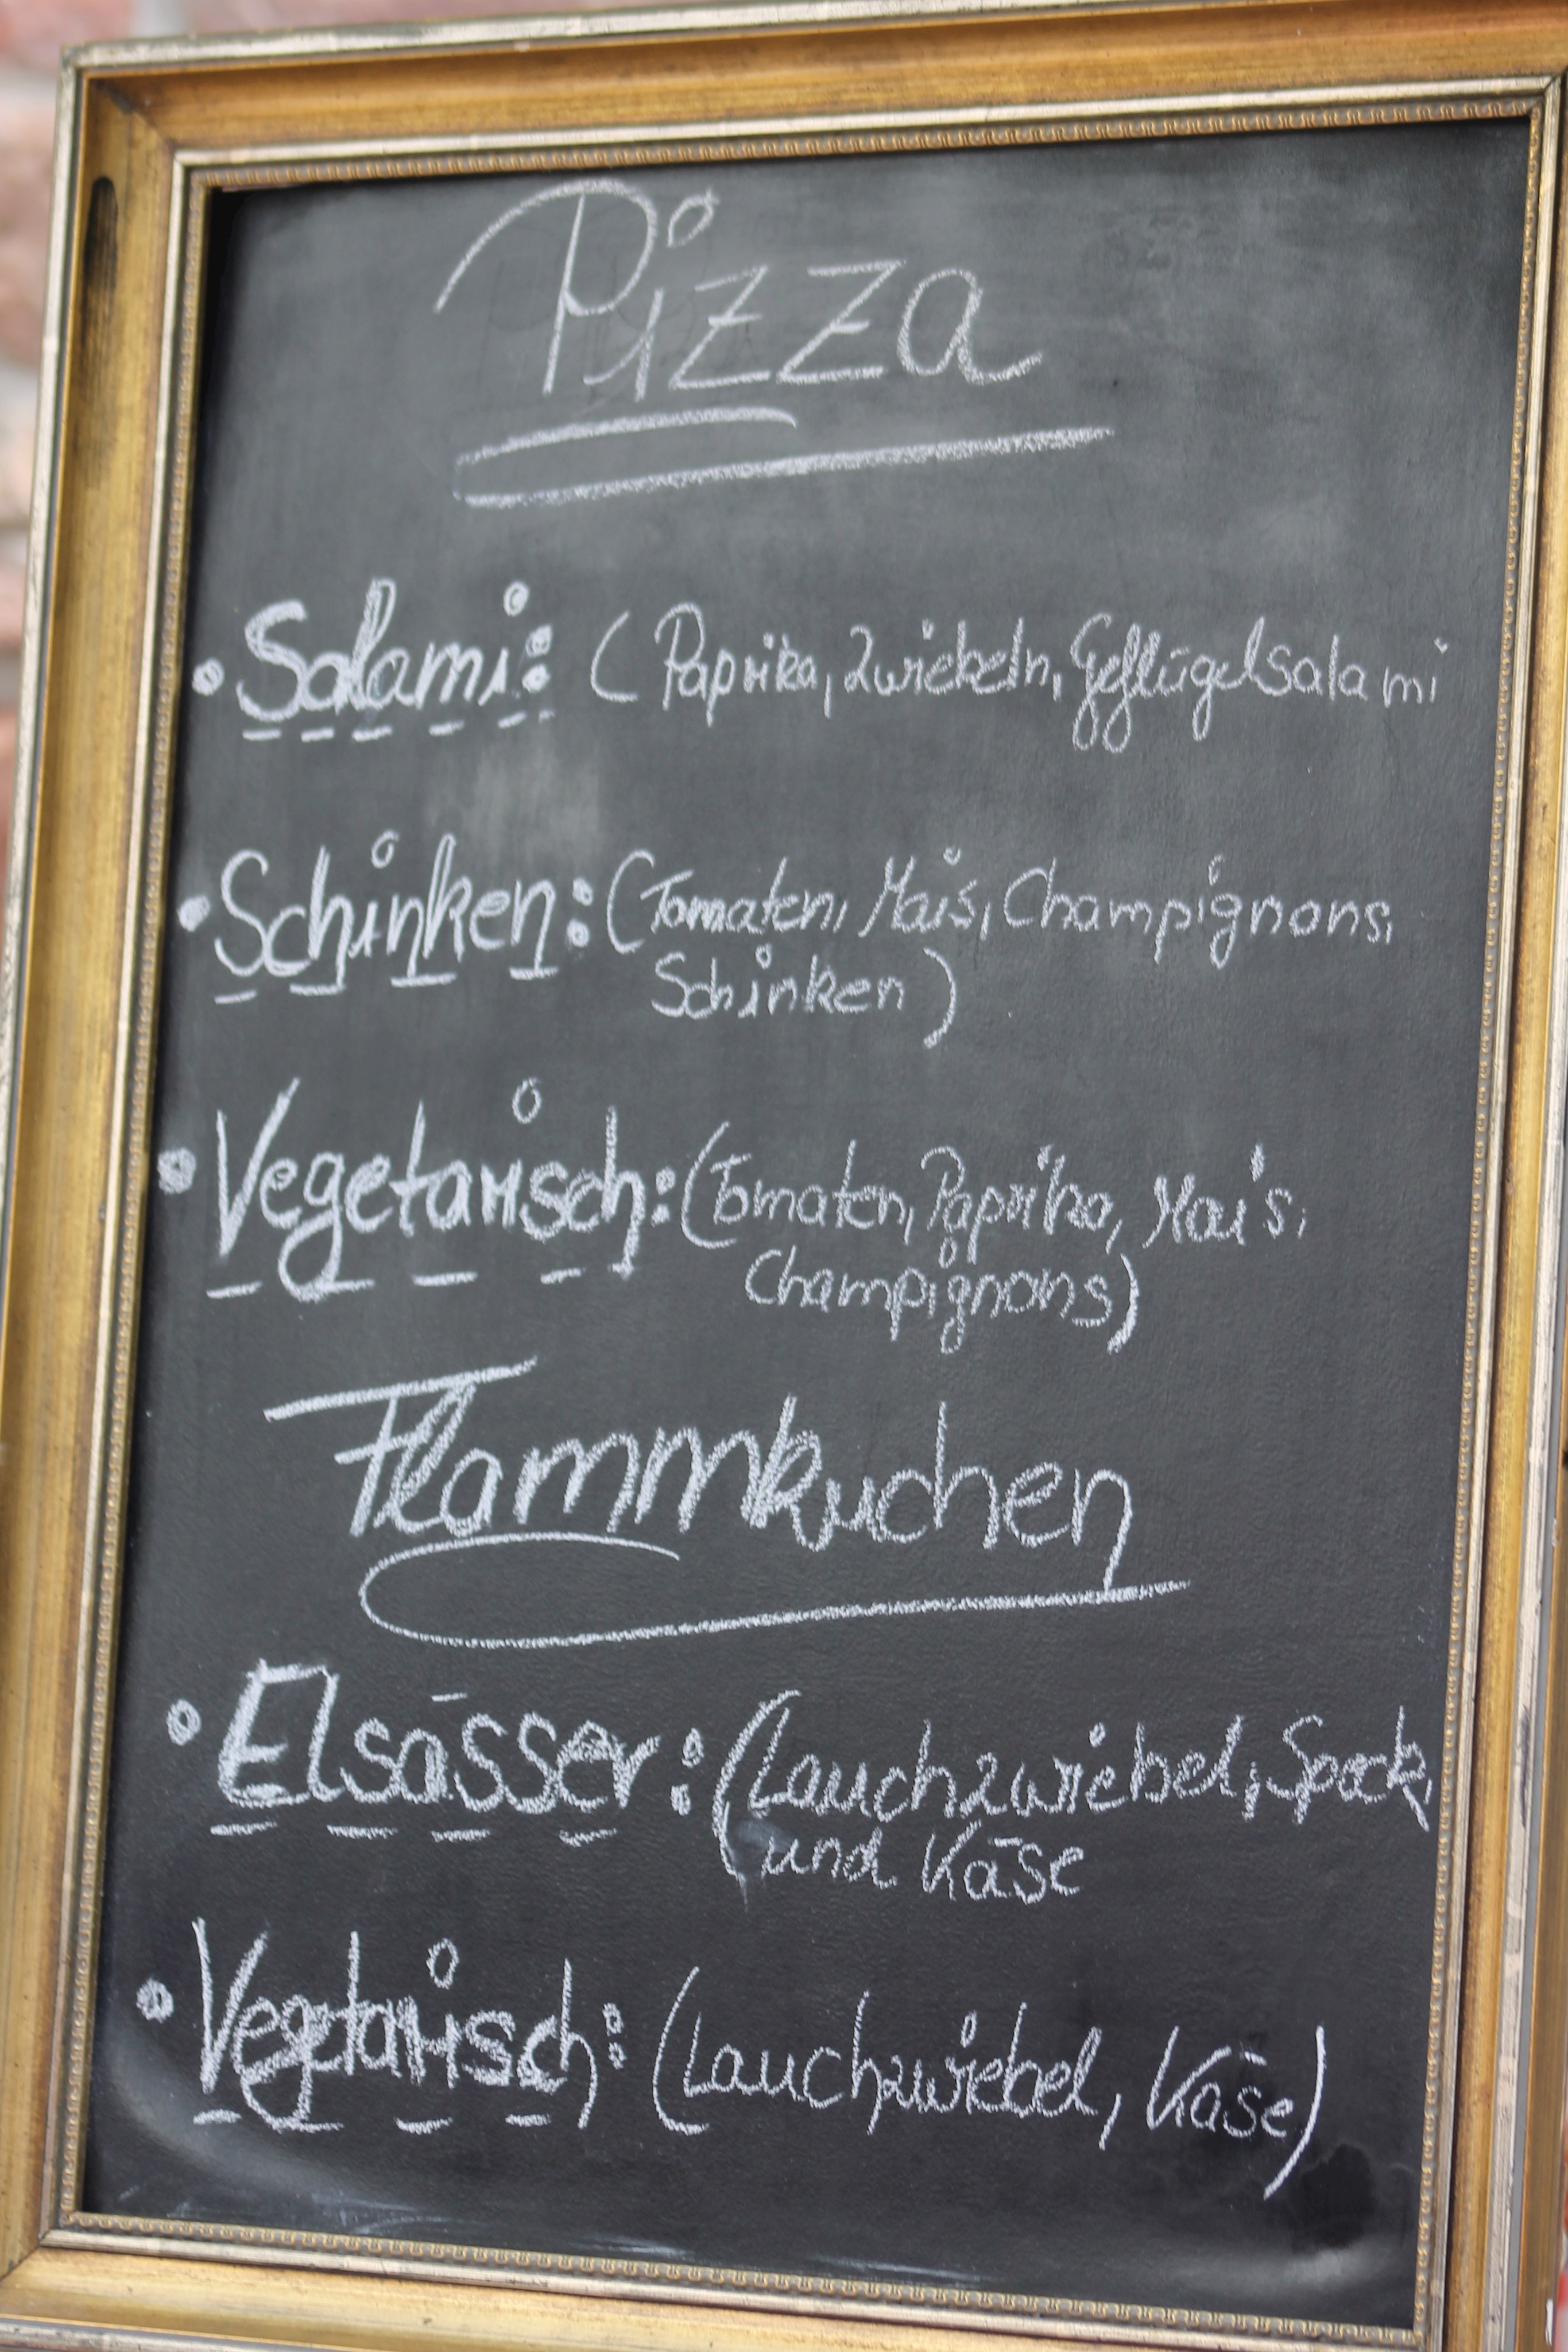 Pizza
• Salami: (Paprika, Zwiebeln, Geflügelsalami
• Schinken: (Tomaten, Mais, Champignons,
Schinken)
• Vegetarisch: (Tomaten, Paprika, Mais,
Champignons)
Flammkuchen
• Elsässer: (Lauchzwiebel, Speck,
und Käse
• Vegetarisch: (Lauchzwiebel, Käse)